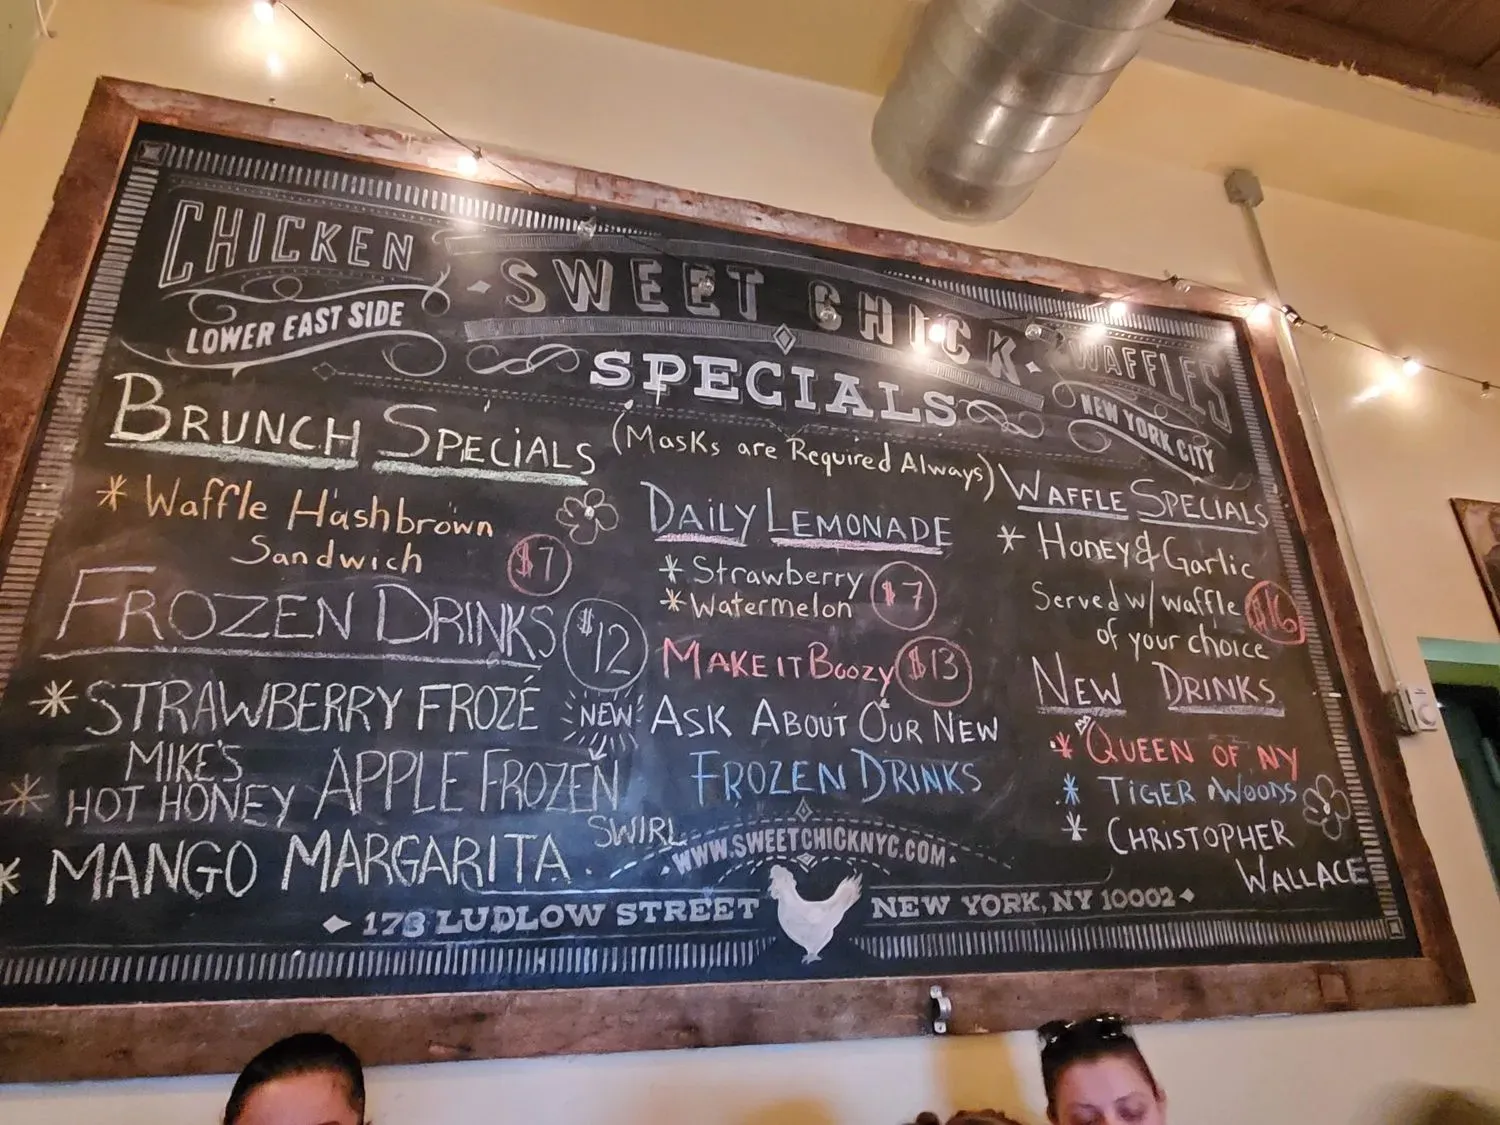 CHICKEN
LOWER EAST SIDE
SWEET CHICK
SPECIALS
WAFFLES
NEW YORK CITY
BRUNCH SPECIALS
* Waffle Hashbrown
Sandwich $7
FROZEN DRINKS $12
* STRAWBERRY FROZÉ
* MIKE'S
HOT HONEY APPLE FROZEN
NEW
* MANGO MARGARITA
SWIRL
(Masks are Required Always)
DAILY LEMONADE
* Strawberry
* Watermelon $7
MAKE IT BOOZY $13
ASK ABOUT OUR NEW
FROZEN DRINKS
WAFFLE SPECIALS
* HONEY & Garlic
Served w/ waffle $16
of your choice
NEW DRINKS
* QUEEN OF NY
* TIGER WOODS
* CHRISTOPHER
WALLACE
WWW.SWEETCHICKNYC.COM
178 LUDLOW STREET NEW YORK, NY 10002